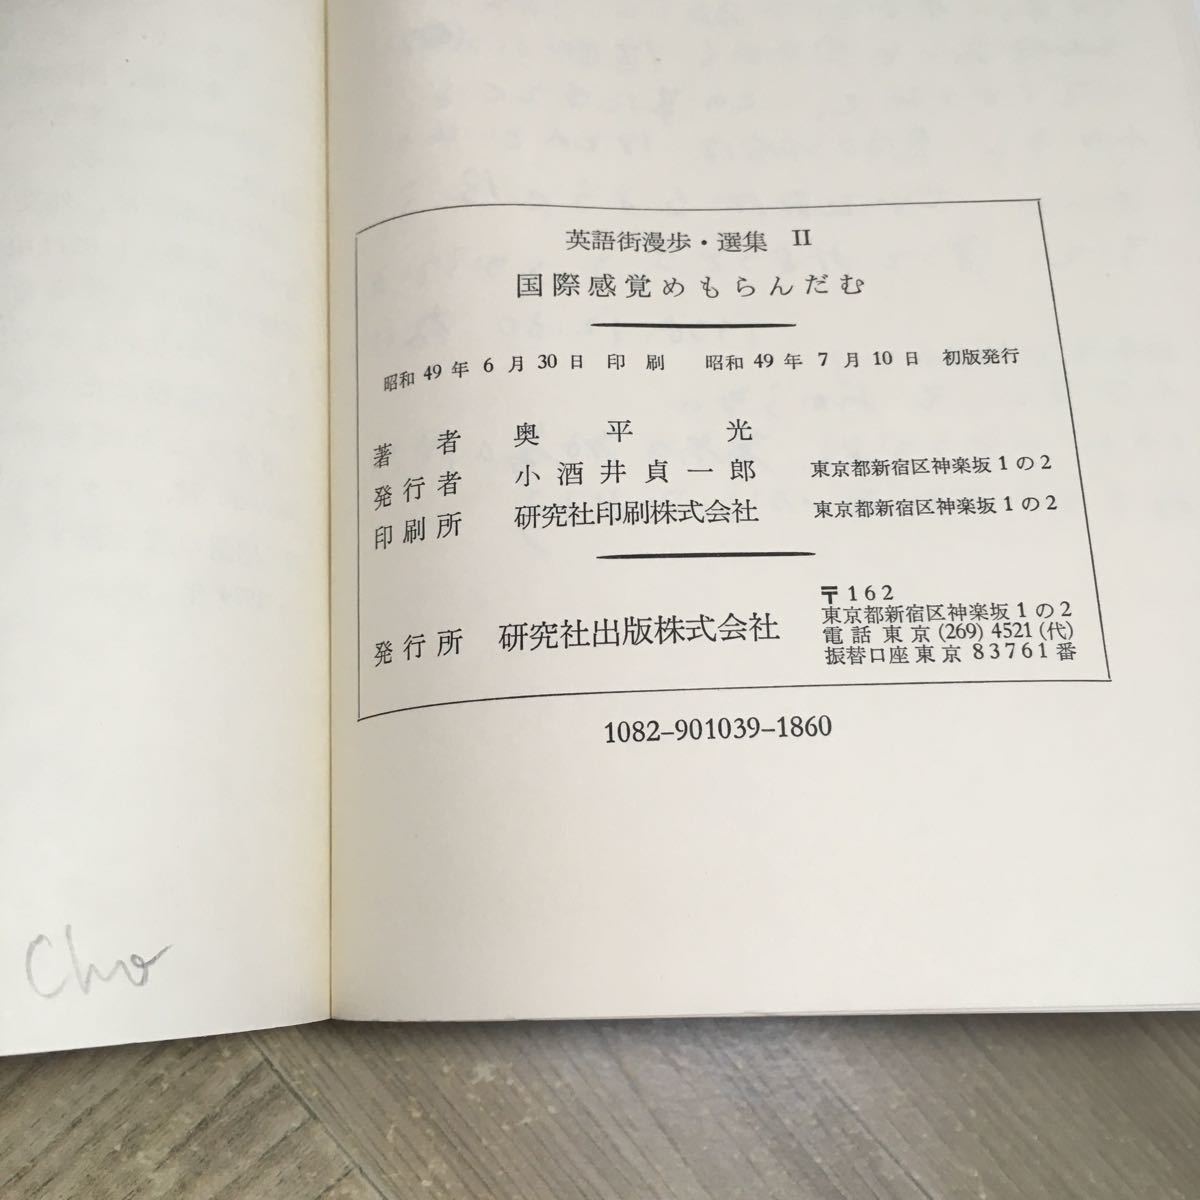 英語街漫歩・選集 II
国際感覚めもらんだむ
昭和 49 年 6 月 30 日 印 刷 昭和 49 年 7 月 10 日 初版発行
著者 奥平光
発行者 小酒井貞一郎 東京都新宿区神楽坂1の2
印刷所 研究社印刷株式会社 東京都新宿区神楽坂1の2
発行所 研究社出版株式会社
〒162
東京都新宿区神楽坂1の2
電話 東京 (269) 4521 (代)
振替口座東京 83761 番
1082-901039-1860
Cho